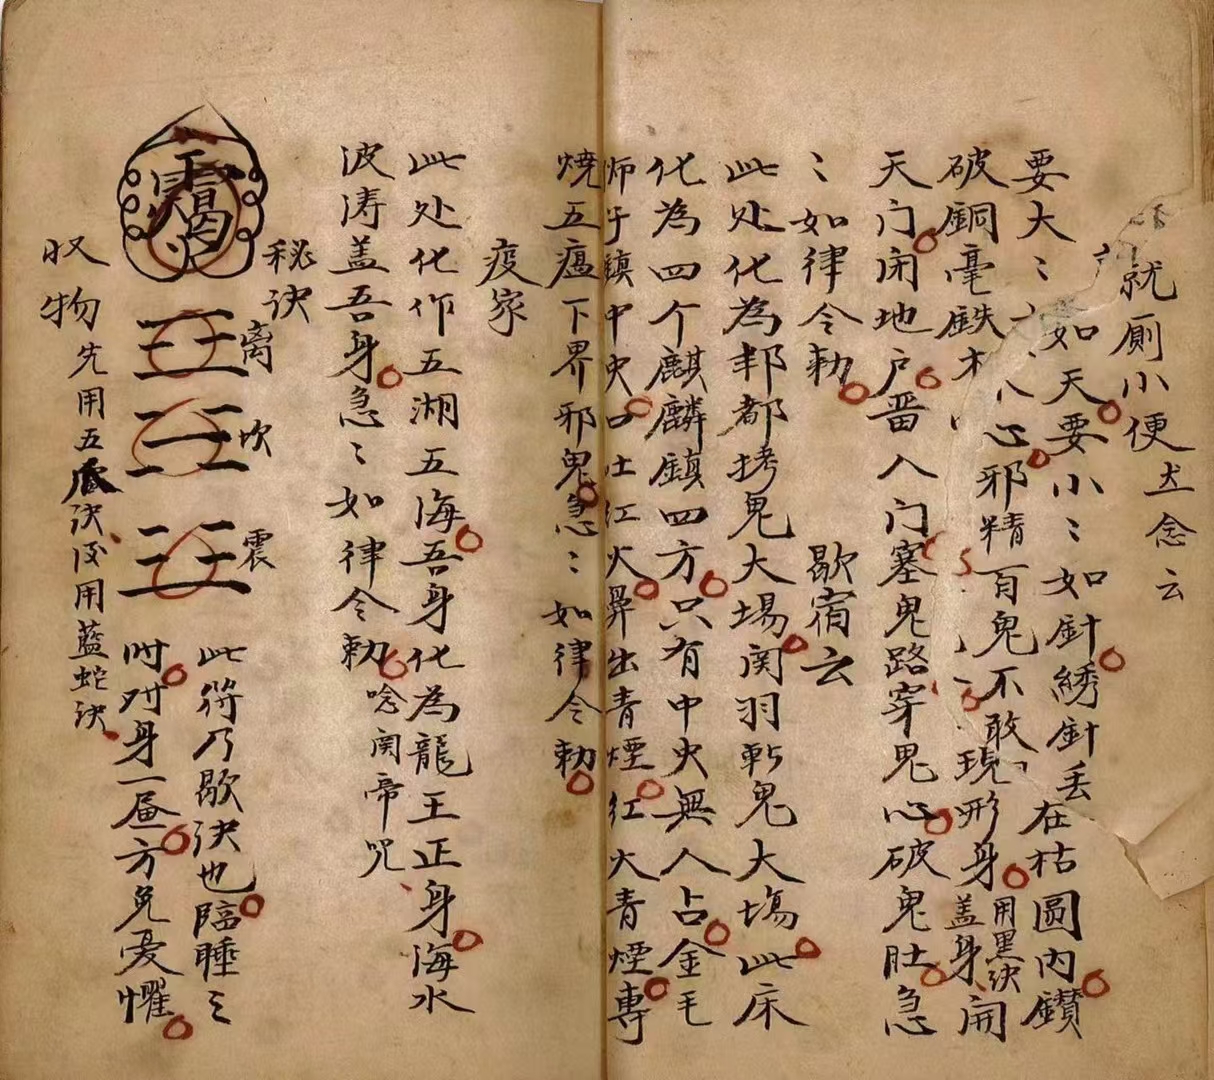 就厠小便念云
要大〻如天要小〻如針綉針丢在枯圓内鑚
破銅毫鉄心邪精百鬼不敢現形身用黑决盖身開
天门闭地户人门塞鬼路穿鬼心破鬼肚急
〻如律令勅
歇宿云
此处化為邦都拷鬼大場関羽斬鬼大塲此床
化為四个麒麟鎮四方只有中央無人占金毛
师子鎮中央口吐红火鼻出青煙红火青煙專
燒五瘟下界邪鬼急〻如律令勅
疫家
此处化作五湖五海吾身化為龍王正身海水
波涛盖吾身急〻如律令勅唸関帝咒
秘决
离
坎
震
此符乃歇决也臨睡之
时对身一方免憂懼
収物先用五决后用藍蛇决